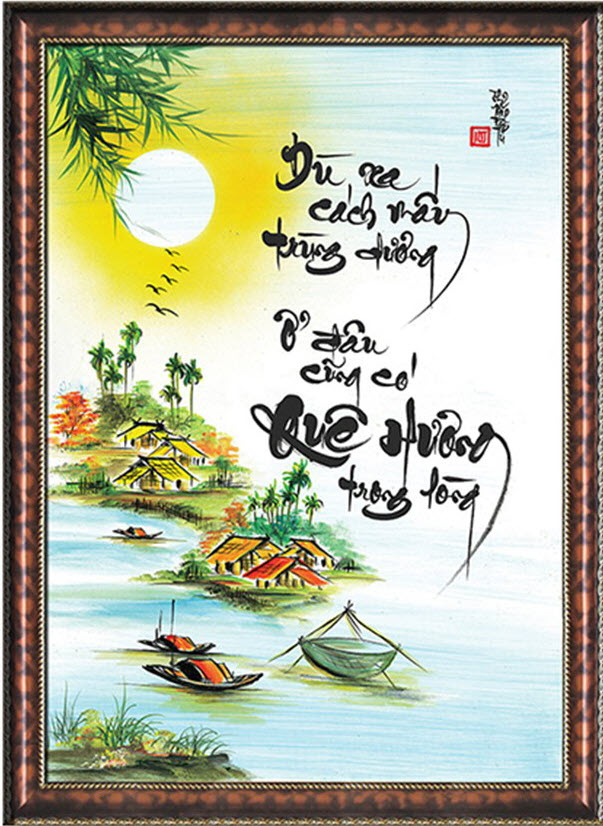 Dù xa
cách mấy
trùng dương
Ở đâu
cũng có
Quê Hương
trong lòng